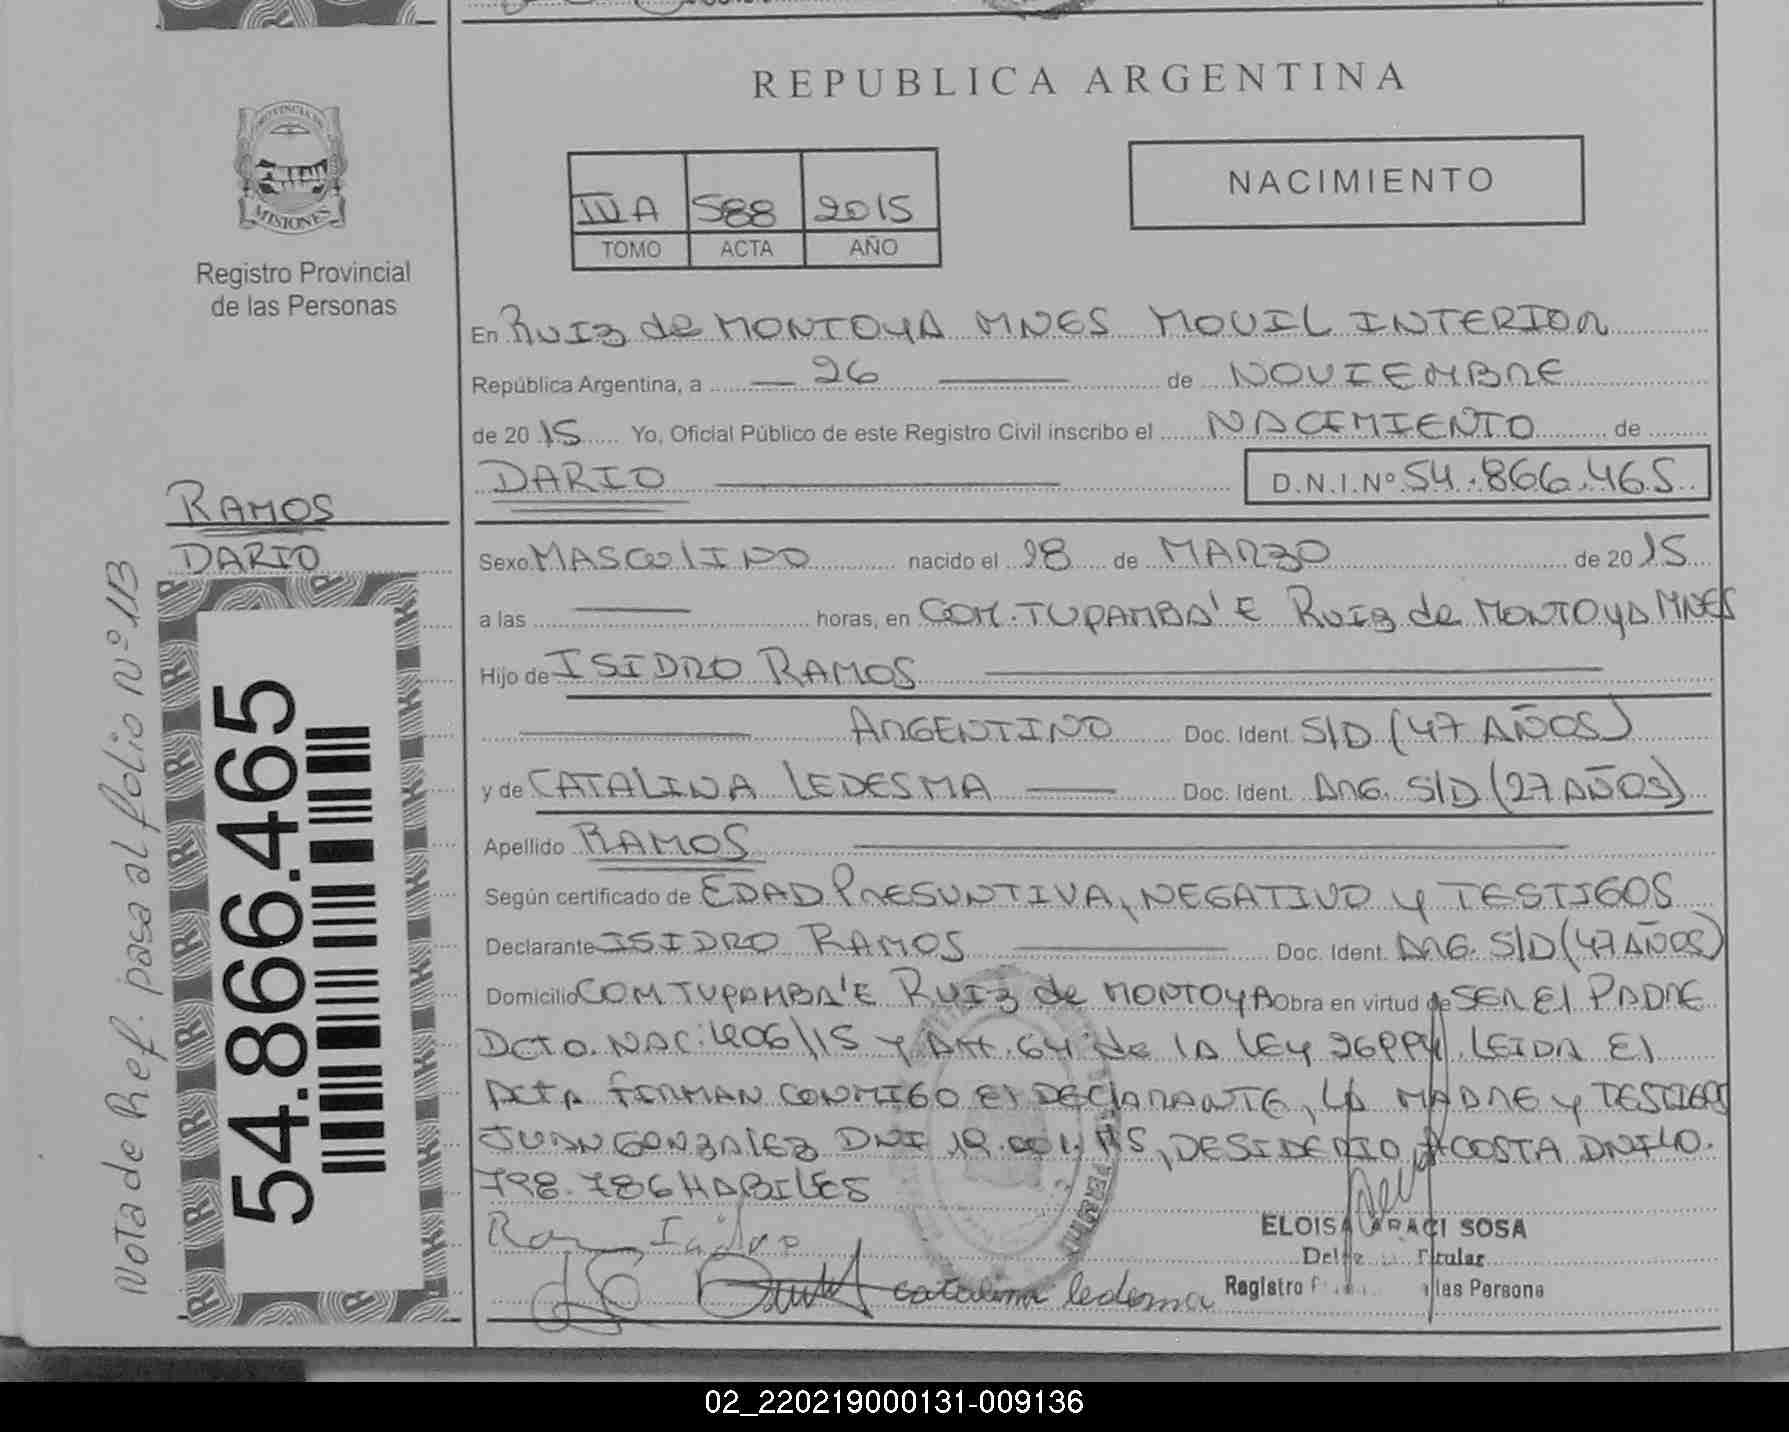 REPUBLICA ARGENTINA
PROVINCIA DE
MISIONES
Registro Provincial
de las Personas
NACIMIENTO
IVA 588 2015
TOMO ACTA AÑO
En Ruiz de MONTOYA MNES MOVIL INTERIOR
República Argentina, a 26 de NOVIEMBRE
de 2015 Yo, Oficial Público de este Registro Civil inscribo el NACIMIENTO de
DARIO D.N.I.Nº 54.866.465
RAMOS
DARIO
Sexo MASCULINO nacido el 28 de MARZO de 2015
a las horas, en COM. TUPAMBA'E Ruiz de MONTOYA MNES
Hijo de ISIDRO RAMOS
ARGENTINO Doc. Ident. S/D (47 AÑOS)
y de CATALINA LEDESMA Doc. Ident. ARG. S/D (27 AÑOS)
Apellido RAMOS
Según certificado de EDAD PRESUNTIVA, NEGATIVO Y TESTIGOS
Declarante ISIDRO RAMOS Doc. Ident. ARG. S/D (47 AÑOS)
Domicilio COM TUPAMBA'E RUIZ de MONTOYA Obra en virtud de SER El PADRE
DCTO. NAC. 406/15 Y Art. 64 de la LEY 26994. LEIDA El
ACTA FIRMAN CONMIGO El DECLARANTE, LA MADRE Y TESTIGOS
JUAN GONZALEZ DNI DESIDERIO ACOSTA DNI 40.
798.786 HABILES
Catalina ledesma
ELOISA ARACI SOSA
Titular
Registro las Persona
54.866.465
Nota de Ref. pasa al folio Nº 113
02_220219000131-009136